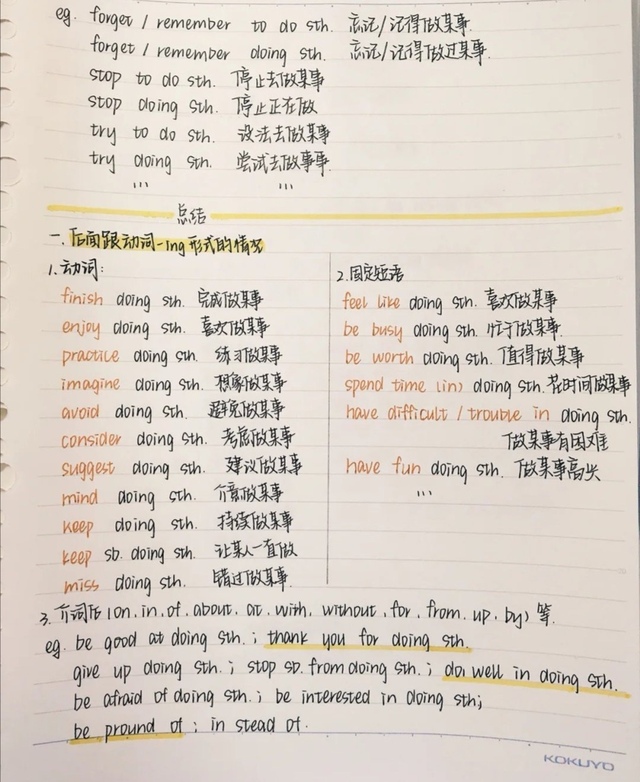 eg. forget / remember to do sth. 忘记/记得做某事
forget / remember doing sth. 忘记/记得做过某事.
stop to do sth. 停止去做某事
stop doing sth. 停止正在做
try to do sth. 设法去做某事
try doing sth. 尝试去做事事.
... ...
总结
一.后面跟动词-ing形式的情况
1.动词:
finish doing sth. 完成做某事
enjoy doing sth. 喜欢做某事
practice doing sth. 练习做某事
imagine doing sth. 想象做某事
avoid doing sth. 避免做某事
consider doing sth. 考虑做某事
suggest doing sth. 建议做某事
mind doing sth. 介意做某事
keep doing sth. 持续做某事
keep sb. doing sth. 让某人一直做
miss doing sth. 错过做某事.
2.固定短语
feel like doing sth. 喜欢做某事
be busy doing sth. 忙于做某事.
be worth doing sth. 值得做某事
spend time (in) doing sth. 花时间做某事
have difficult / trouble in doing sth.
做某事有困难
have fun doing sth. 做某事高兴
...
3. 介词后 (on. in. of. about. at. with. without. for. from. up. by) 等.
eg. be good at doing sth. ; thank you for doing sth.
give up doing sth. ; stop sb. from doing sth. ; do well in doing sth.
be afraid of doing sth. ; be interested in doing sth;
be pround of ; in stead of.
KOKUYO